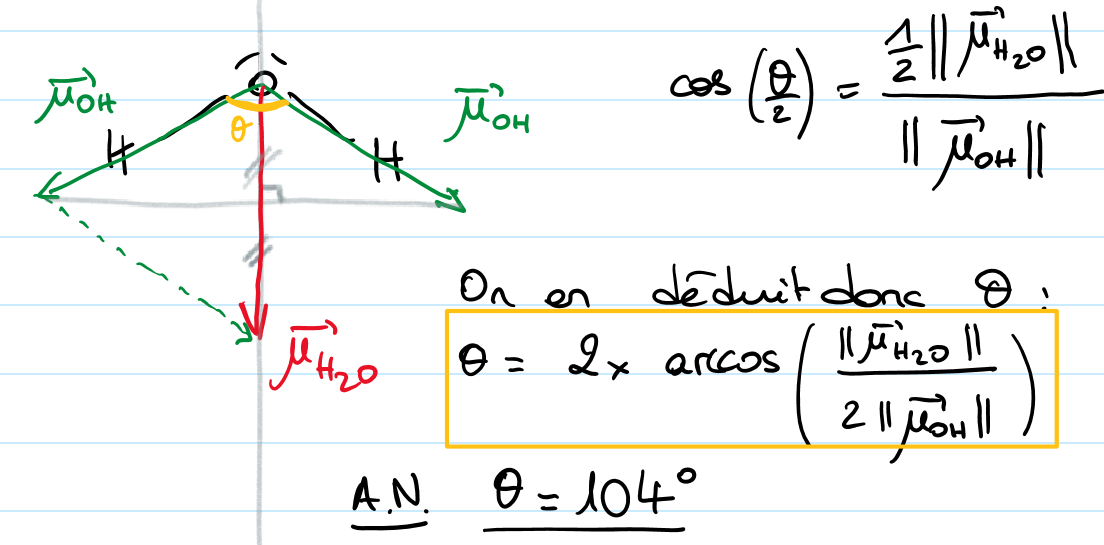 μ⃗OH
O
μ⃗OH
θ
H
H
μ⃗H₂O
cos (θ/2) = ½ || μ⃗H₂O || / || μ⃗OH ||
On en déduit donc θ :
θ = 2 × arccos ( || μ⃗H₂O || / 2 || μ⃗OH || )
A.N. θ = 104°